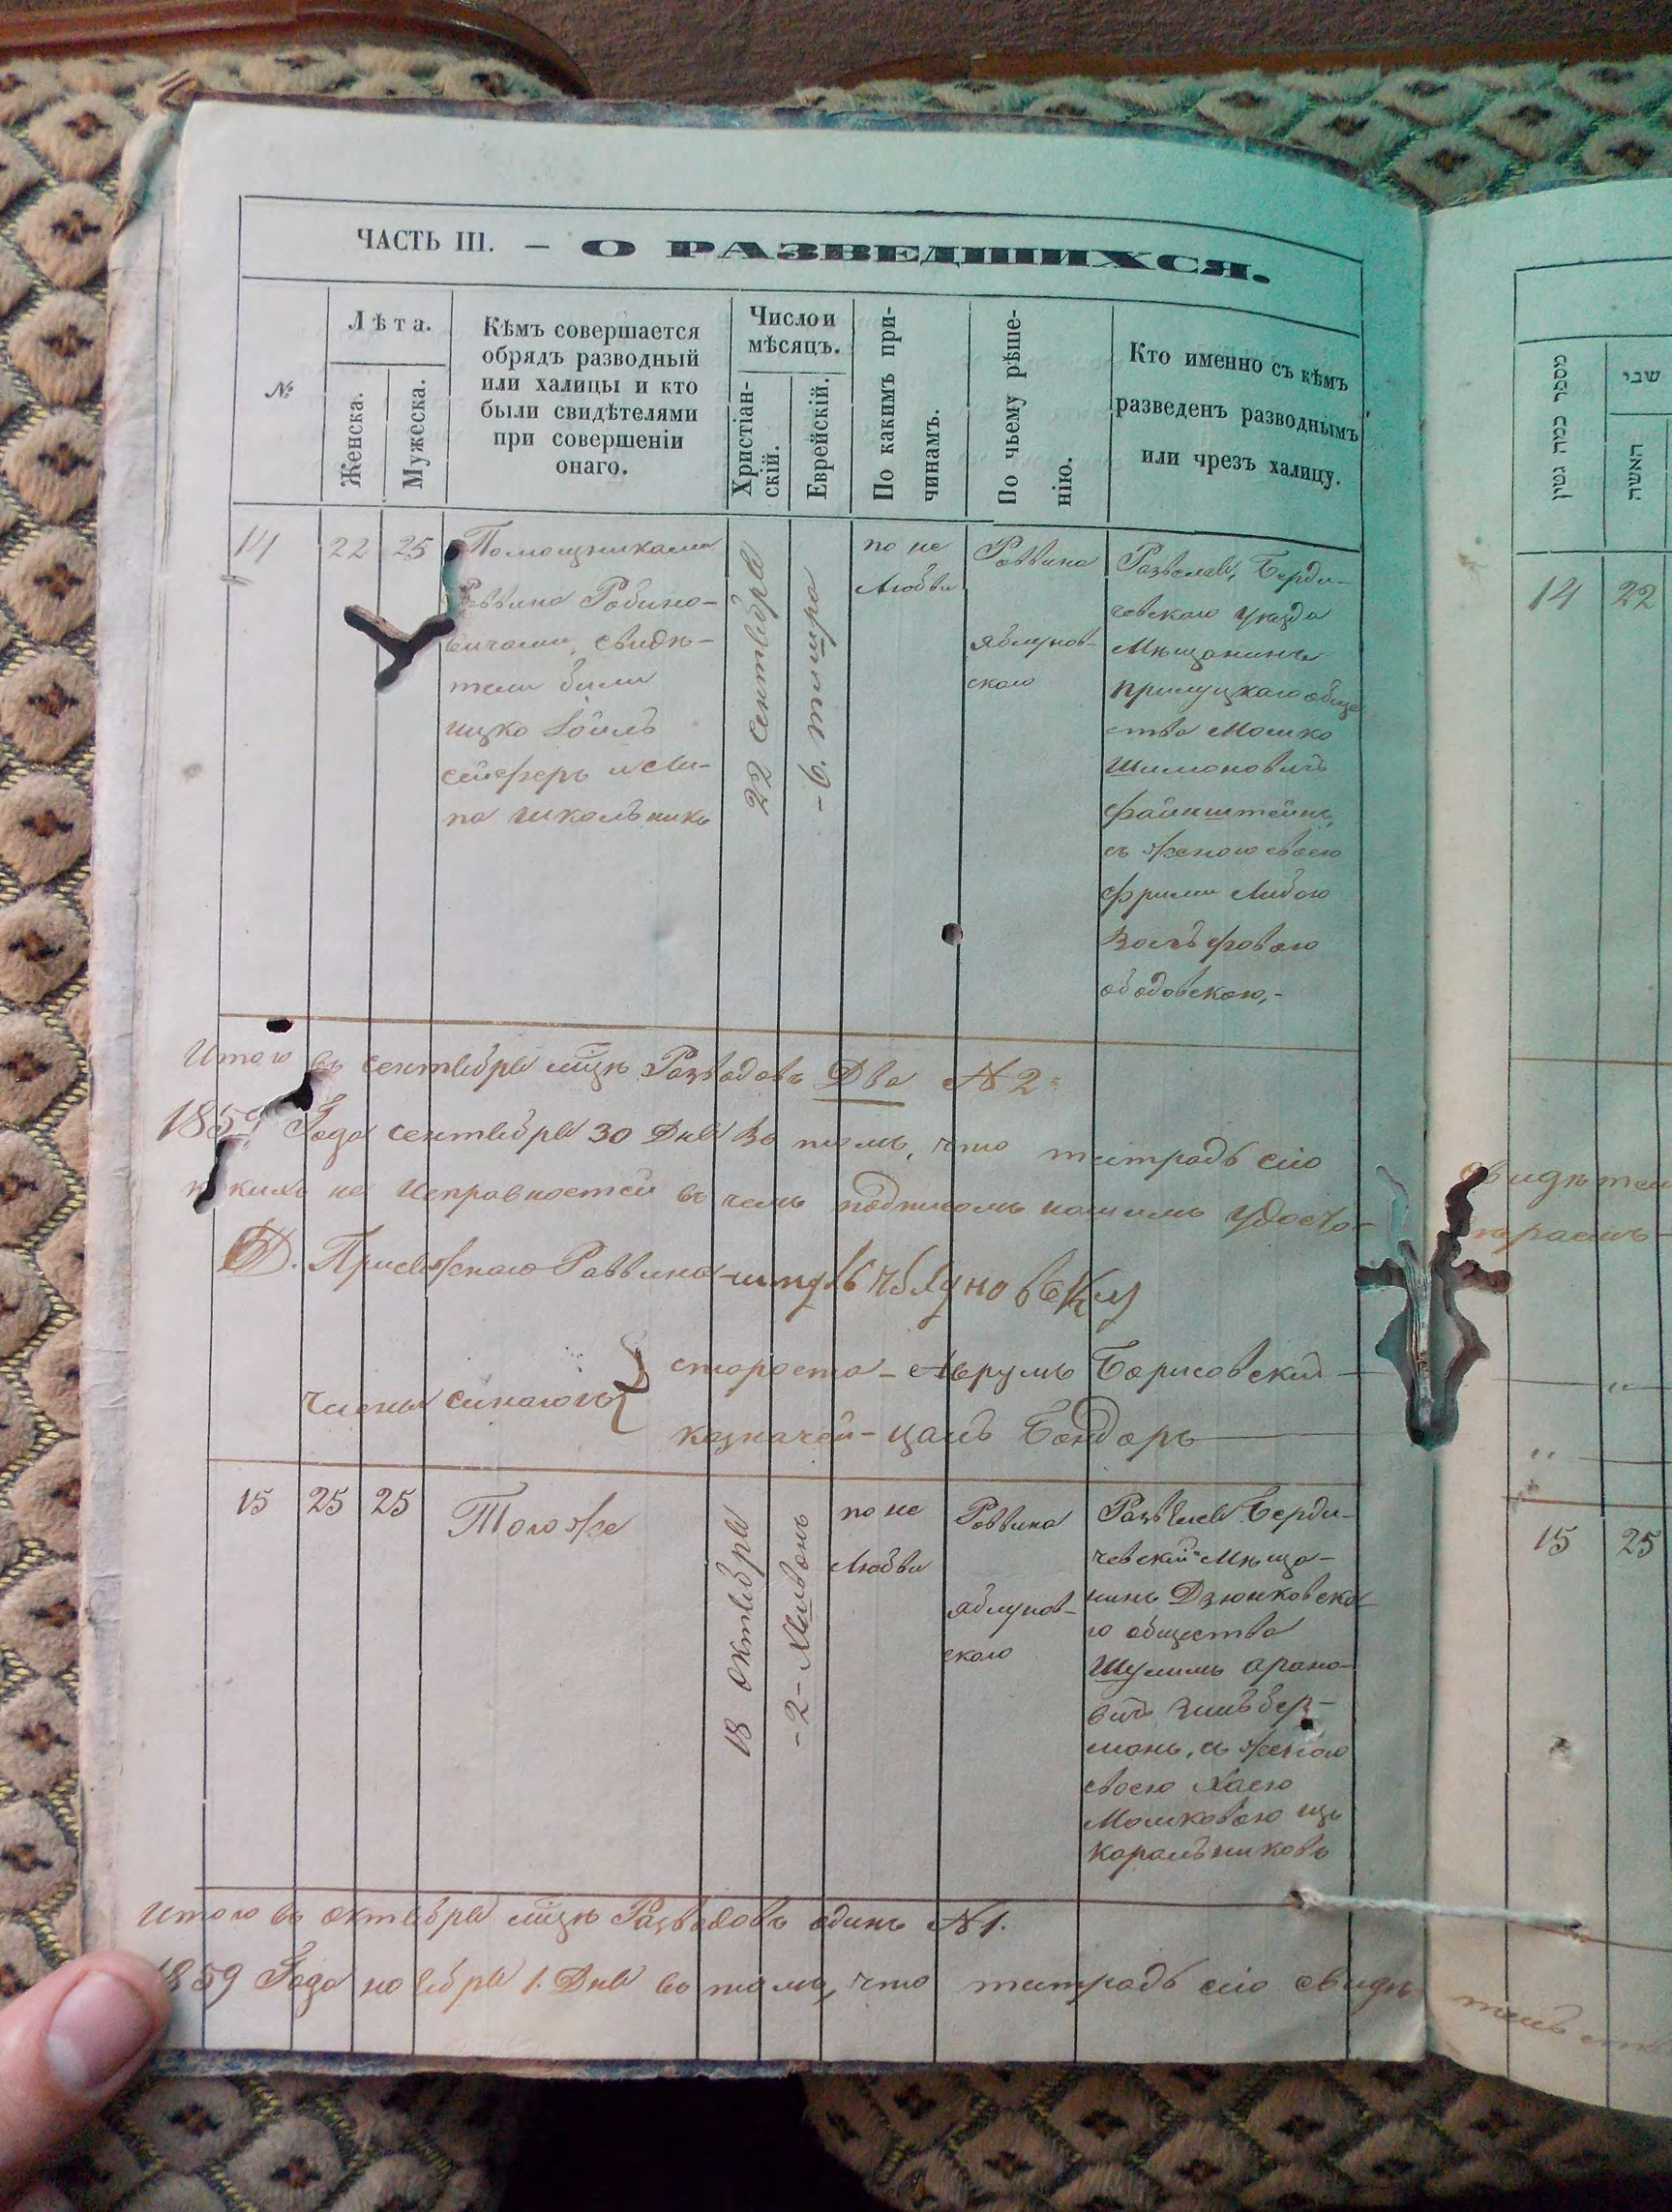 ЧАСТЬ III. — О РАЗВЕДШИХСЯ.
№
Лѣта.
Женска.
Мужеска.
Кѣмъ совершается
обрядъ разводный
или халицы и кто
были свидѣтелями
при совершеніи
онаго.
Число и
мѣсяцъ.
Христіан-
скій.
Еврейскій.
По какимъ при-
чинамъ.
По чьему рѣше-
нію.
Кто именно съ кѣмъ
разведенъ разводнымъ
или чрезъ халицу.
14
22
25
Помощниками
Раввина Рабино-
вичами, свидѣ-
тели были
ицко Іойлъ
сейферъ
па школьникъ
22 сентября
-6. тишра
по не
Любви
Раввина
яблунов-
скаго
Развелся, Берди-
чевскаго уѣзда
Мѣщанинъ
прилуцкаго обще
ства Мошко
Шимоновичъ
файнштейнъ,
съ женою своею
фрими Либою
Вольфовою
ободовскою,-
Итого въ сентябрѣ мцѣ Разводовъ Два №2.
1859 Года сентября 30 Дня Въ томъ, что тетрадь сію
не исправностей въ чемъ подписомъ нашимъ удосто-
Д. Присяжнаго Раввина
члены синагоги { староста - Аврумъ Борисовский
казначей - цаль Бондарь
15
25
25
Того же
18 октября
-2- Хешвонъ
по не
Любви
Раввина
яблунов-
скаго
Развелся Берди-
чевский Мѣща-
нинъ Дзюнковска-
го общества
Шулимъ арано-
вичъ Зильбер-
манъ, съ женою
своею Хаею
Мошковою изъ
Каральниковъ
Итого въ октябрѣ мцѣ Разводовъ одинъ №1.
1859 Года ноября 1. Дня въ томъ, что тетрадь сію свидѣ
מספר כמה גטין
שני
האשה
14
22
15
25